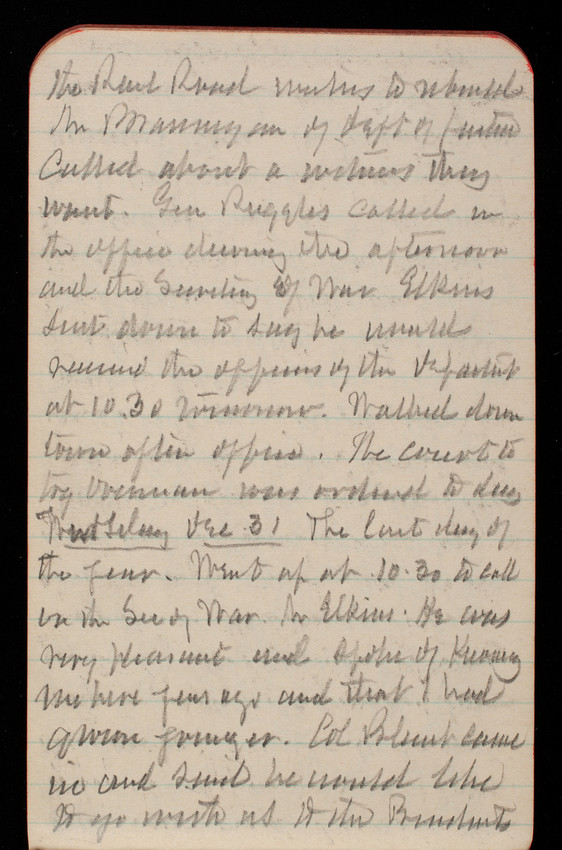 the Rail Road wishes to rebuild
Mr Brannigan of Dept of Justice
Called about a witness they
want. Gen Ruggles called in
the office during the afternoon
and the Secretary of War Elkins
sent down to say he would
receive the officers of the Department
at 10.30 tomorrow. Walked down
town after office. The court to
try was ordered to day
Dec 31 The last day of
the year. Went up at 10.30 to call
on the Sec of War. Mr Elkins. He was
very pleasant and spoke of knowing
me here years ago and that I had
grown younger. Col Blunt came
in and said he would like
to go with us to the Presidents